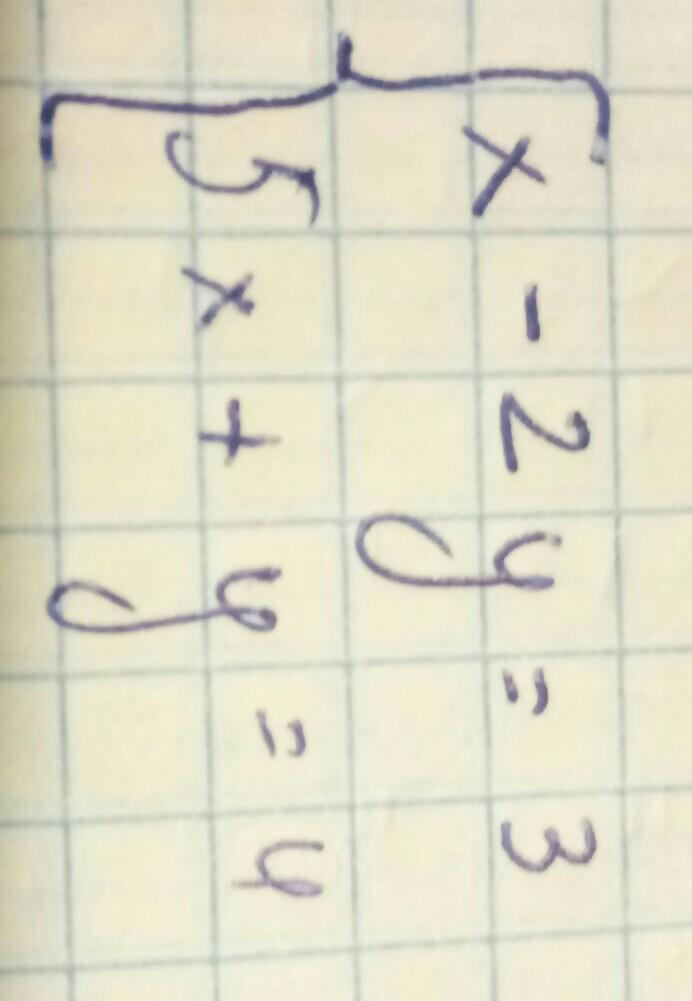 x - 2y = 3
5x + y = 4